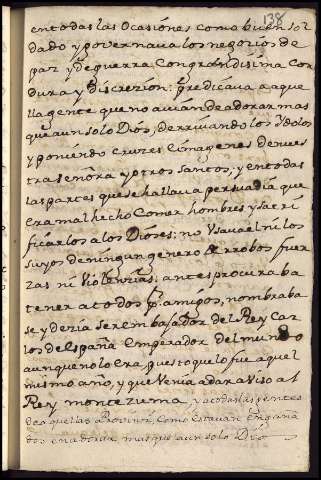 138
entodas las Ocasiónes como buen sol
dado y governava los negocios de
paz y deguerra Congrandisima Cor
dura y Discrezion: predicava a aque
lla gente que no avian de adorar mas
que aun solo Diós, derrivando los Ydolos
y poniendo cruzes e imagenes de nues
tra señora y otros santos; y entodas
las partes que se hallava persuadia que
era mal hecho Comer hombres y sacri
ficarlos a los Dióses: no Usava el ni los
suyos de ningun genero de rrobos fuer
zas ni Violenzias; antes procuraba
tener a todos por amigos, nombraba
se y dezia ser embajador del Rey Car
los de España Emperador del mundo
aunque no lo era, puesto que lo fue aquel
mismo año, y que venia a dar aviso al
Rey montezuma, y a todas las gentes
de aquellas Provincias, como estavan engaña
dos en adorar mas que a un solo Dió